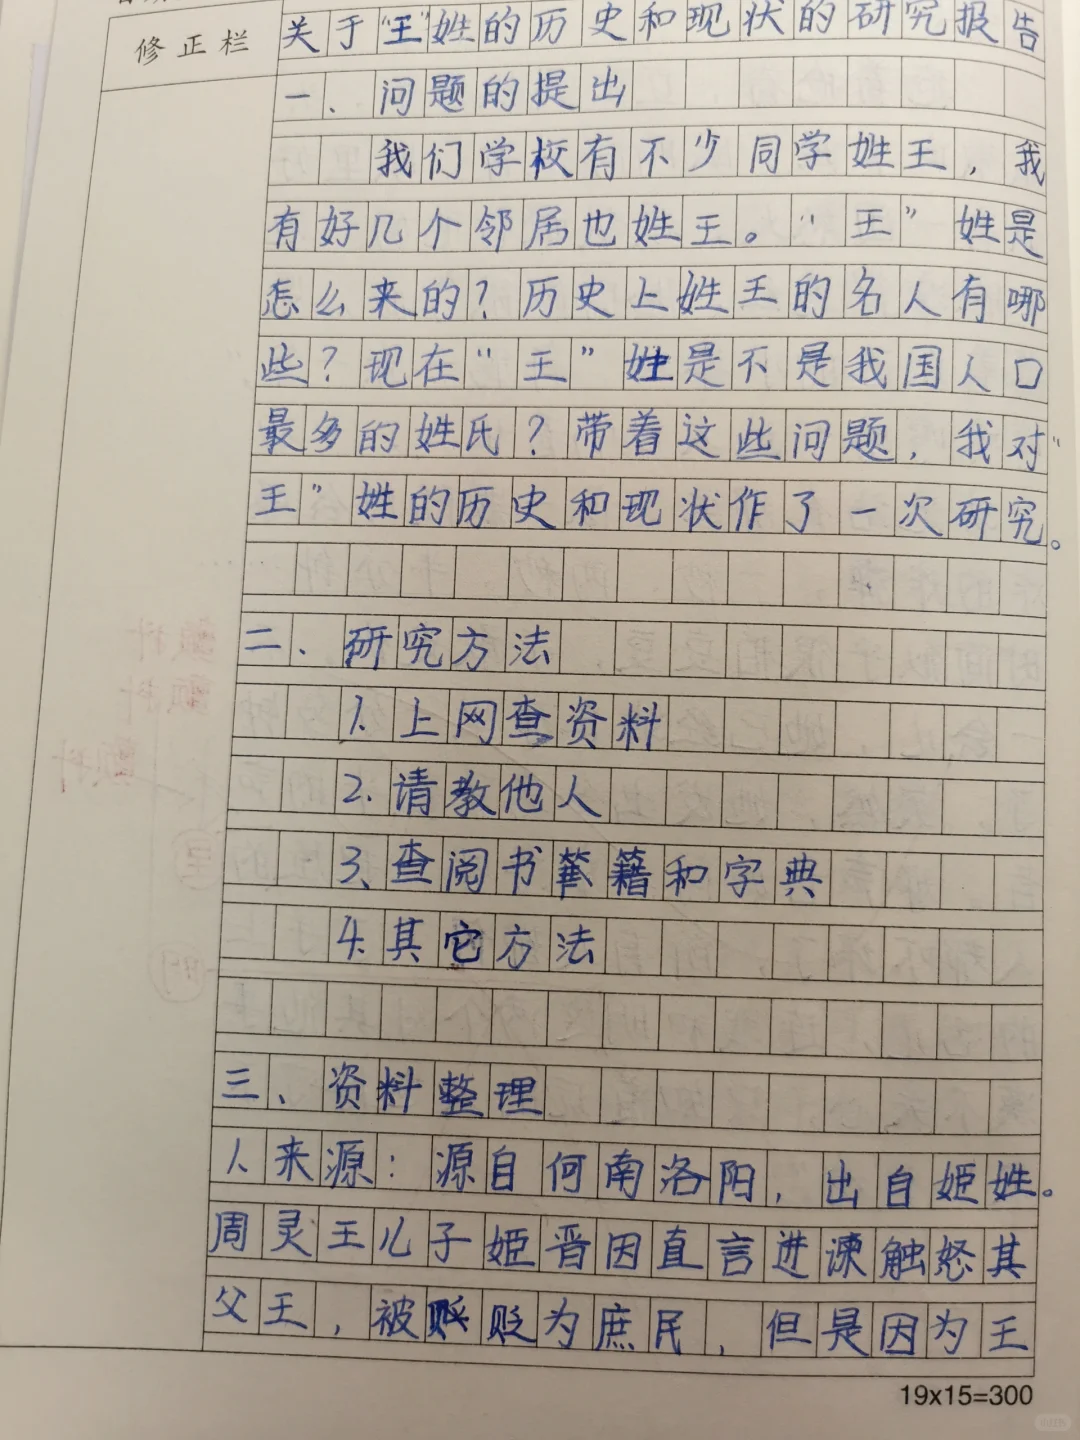 修正栏
关于“王”姓的历史和现状的研究报告
一、问题的提出
我们学校有不少同学姓王，我
有好几个邻居也姓王。“王”姓是
怎么来的？历史上姓王的名人有哪
些？现在“王”姓是不是我国人口
最多的姓氏？带着这些问题，我对“
王”姓的历史和现状作了一次研究。
二、研究方法
1.上网查资料
2.请教他人
3、查阅书籍和字典
4.其它方法
三、资料整理
1、来源：源自何南洛阳，出自姬姓。
周灵王儿子姬晋因直言进谏触怒其
父王，被贬为庶民，但是因为王
19x15=300